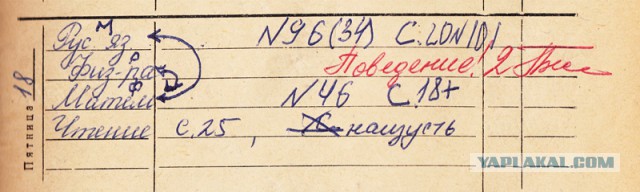 Пятница 18
Рус. яз М N96(34) С.20N101
Физ-ра Р Поведение! 2
Матем Ф N46 С.18+
Чтение с.25, наизусть
YAPLAKAL.COM